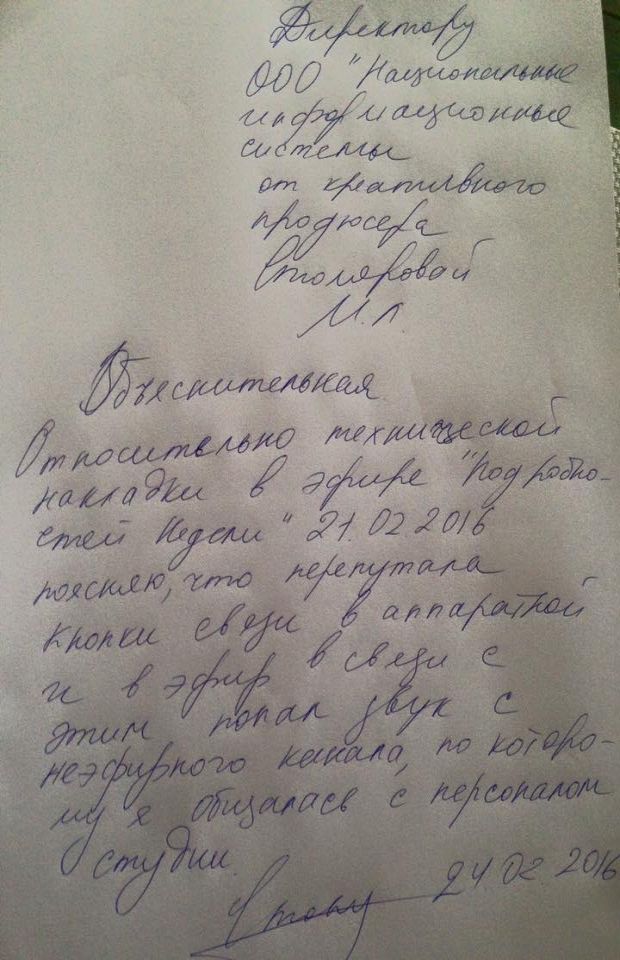 Директору
ООО "Национальные
информационные
системы
от креативного
продюсера
Столяровой
М.Л.
Объяснительная
Относительно технической
накладки в эфире "Подробно-
стей Недели" 21.02.2016
поясняю, что перепутала
кнопки связи в аппаратной
и в эфир в связи с
этим попал звук с
неэфирного канала, по которо-
му я общалась с персоналом
студии.
24.02.2016